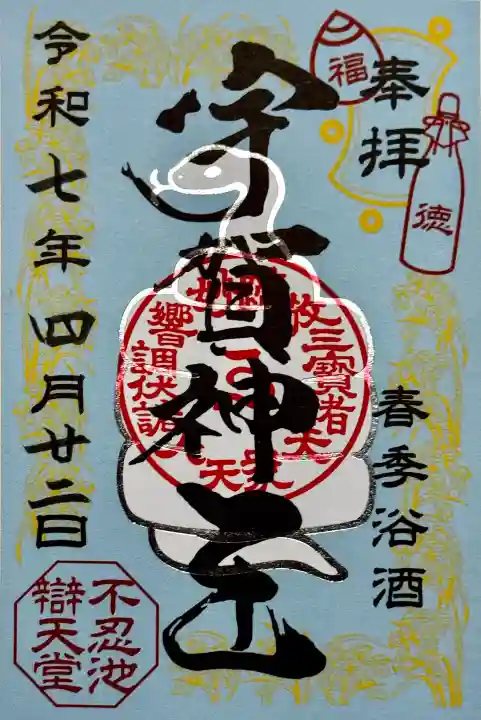 奉拝
福
徳
春季浴酒
宇賀神王
令和七年四月廿二日
不忍池
辯天堂